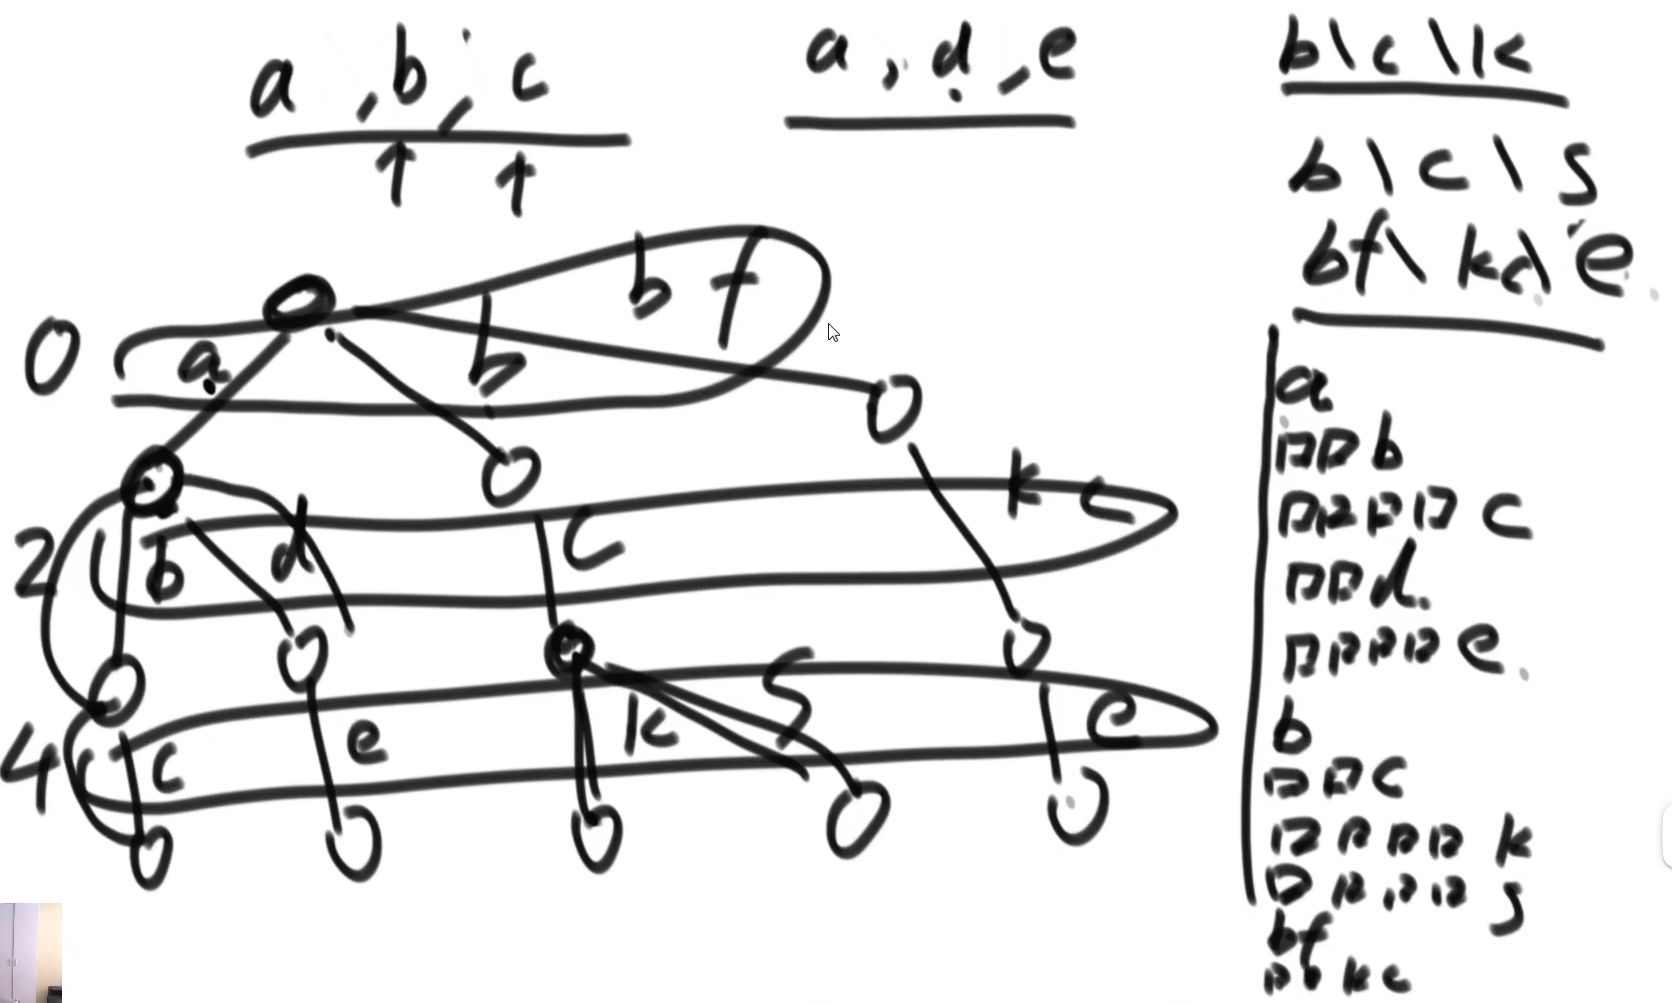 a , b , c
a , d , e
b\c\k
b\c\s
bf\kc\e
0
a
b
bf
2
b
d
c
kc
4
c
e
k
s
e
a
□□b
□□□□c
□□d.
□□□□e
b
□□c
□□□□k
□□□□s
bf
□□kc